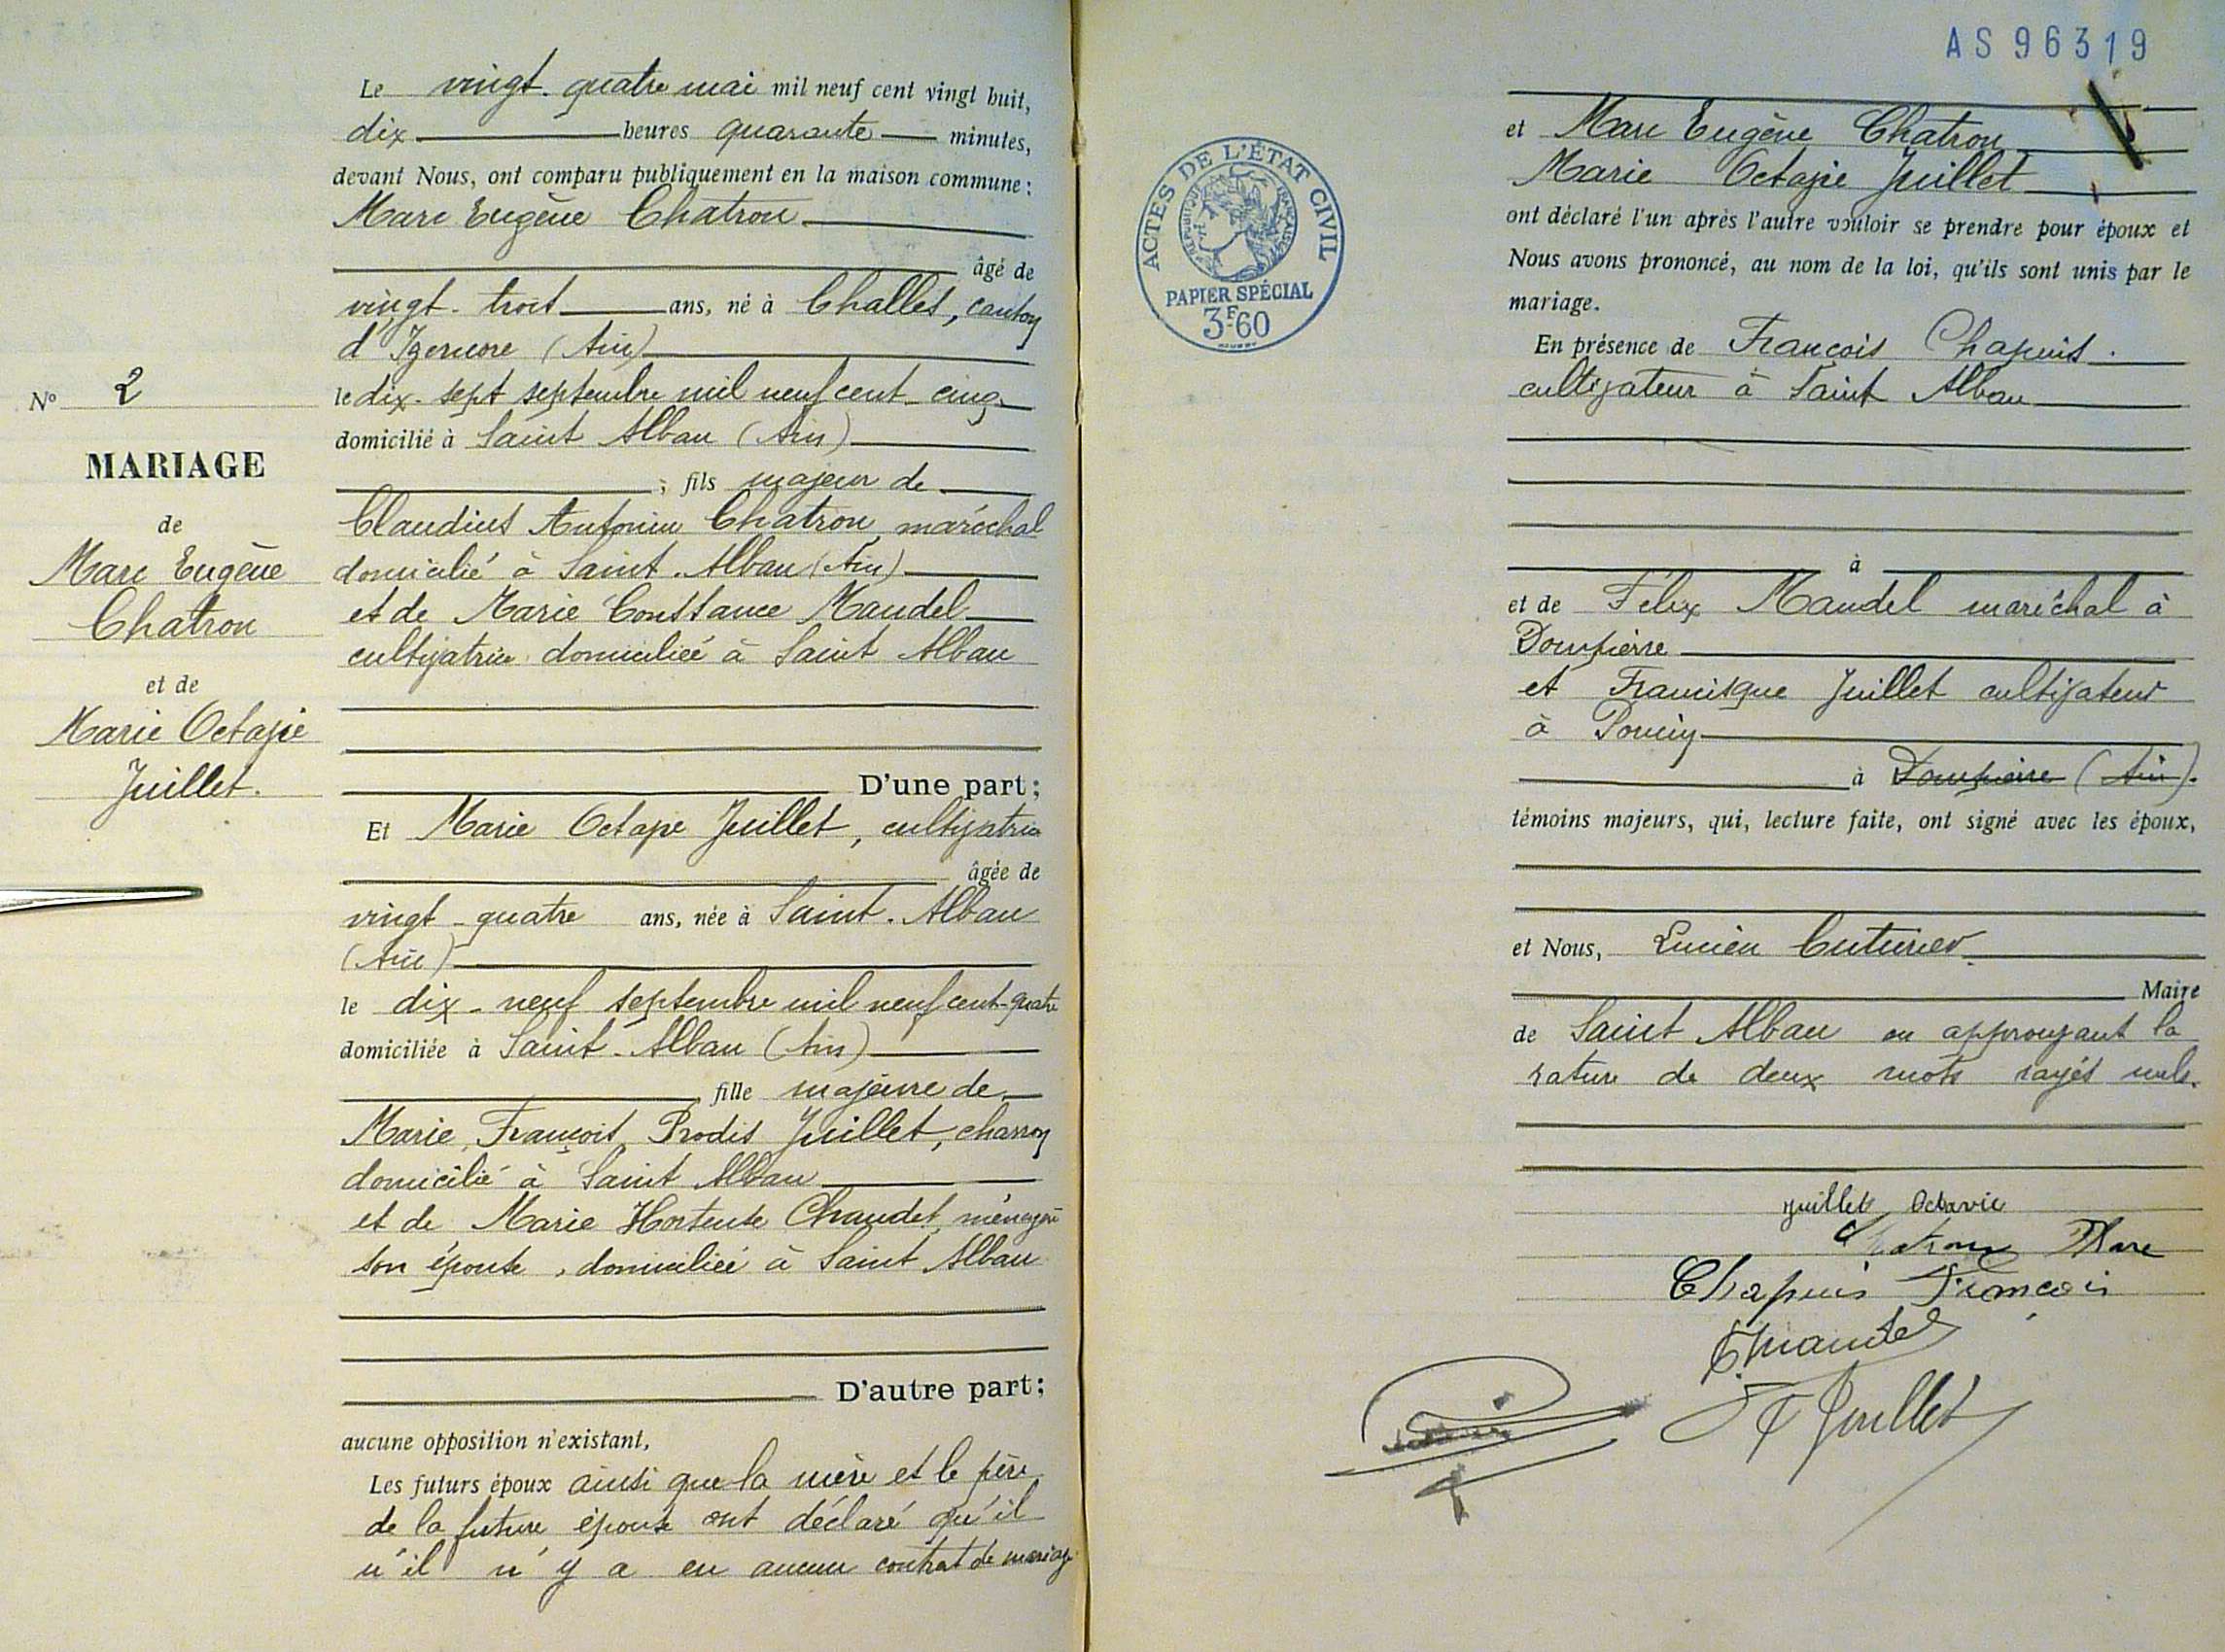 Nº 2
MARIAGE
de
Marc Eugène
Chatron
et de
Marie Octavie
Juillet.
Le vingt-quatre mai mil neuf cent vingt huit,
dix heures quarante minutes,
devant Nous, ont comparu publiquement en la maison commune :
Marc Eugène Chatron
âgé de
vingt-trois ans, né à Challes, canton
d'Izernore (Ain)
le dix-sept septembre mil neuf cent cinq
domicilié à Saint Alban (Ain)
; fils majeur de
Claudius Antonin Chatron, maréchal
domicilié à Saint-Alban (Ain)
et de Marie Constance Mandel
cultivatrice domiciliée à Saint Alban
D'une part ;
Et Marie Octavie Juillet, cultivatrice
âgée de
vingt-quatre ans, née à Saint-Alban
(Ain)
le dix-neuf septembre mil neuf cent-quatre
domiciliée à Saint-Alban (Ain)
, fille majeure de
Marie, François, Juillet, charron
domicilié à Saint Alban
et de Marie Hortense Chaudet, ménagère
son épouse, domiciliée à Saint Alban
D'autre part ;
aucune opposition n'existant,
Les futurs époux ainsi que la mère et le père
de la future épouse ont déclaré qu'il
n'il n'y a eu aucun contrat de mariage
AS 96319
ACTES DE L'ÉTAT CIVIL
RÉPUBLIQUE FRANÇAISE
PAPIER SPÉCIAL
3F60
et Marc Eugène Chatron
Marie Octavie Juillet
ont déclaré l'un après l'autre vouloir se prendre pour époux et
Nous avons prononcé, au nom de la loi, qu'ils sont unis par le
mariage.
En présence de François Chapuis.
cultivateur à Saint Alban
à
et de Félix Mandel maréchal à
Dompierre
et Francisque Juillet cultivateur
à Poncin
à Dompierre (Ain).
témoins majeurs, qui, lecture faite, ont signé avec les époux,
et Nous, Lucien Cuturier
Maire
de Saint Alban en approuvant la
rature de deux mots rayés nuls.
Juillet Octavie
Chatron Marc
Chapuis François
Mandel
F Juillet